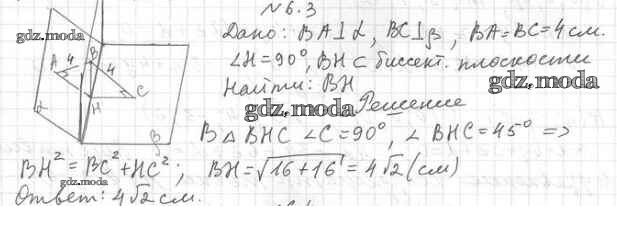 N 6.3
gdz.moda
Дано: BA⊥α, BC⊥β, BA=BC=4см.
∠H=90°, BH ⊂ биссект. плоскости
Найти: BH
gdz.moda
Решение
A 4 B 4 C
H
α
β
В △ BHC ∠C=90°, ∠BHC=45° =>
BH²=BC²+HC²; BH=√16+16=4√2(см)
gdz.moda
Ответ: 4√2 см.